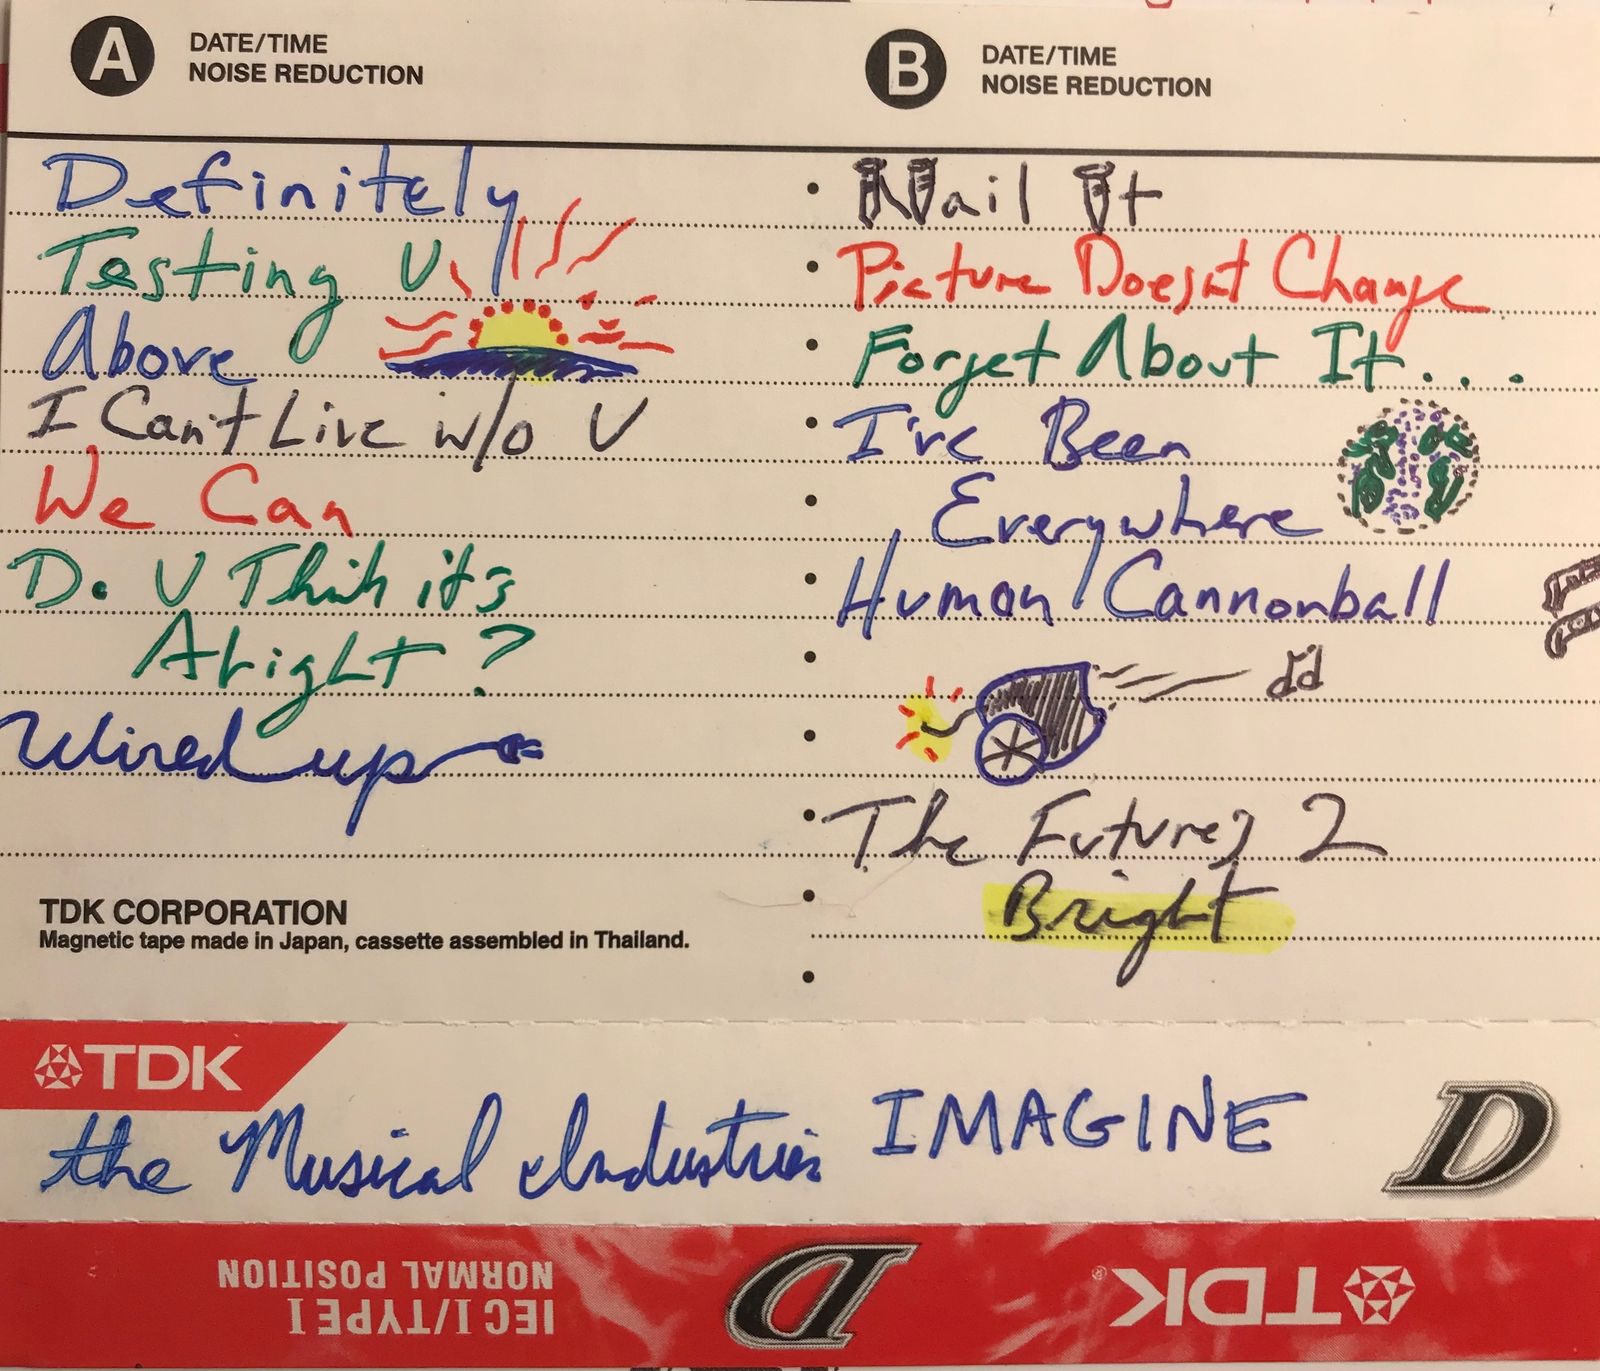 A DATE/TIME
NOISE REDUCTION
Definitely
Testing U
Above
I Can't Live w/o U
We Can
Do U Think it's
Alright?
Wired up
TDK CORPORATION
Magnetic tape made in Japan, cassette assembled in Thailand.
B DATE/TIME
NOISE REDUCTION
Nail It
Picture Doesnt Change
Forget About It...
I've Been
Everywhere
Human Cannonball
The Futures 2
Bright
TDK
the Musical Industries IMAGINE D
TDK® D IEC I/TYPE I
NORMAL POSITION